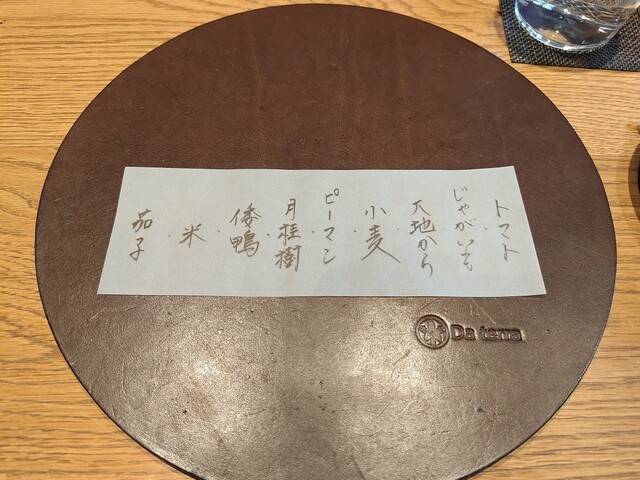 トマト
・
じゃがいも
・
大地から
・
小麦
・
ピーマン
・
月桂樹
・
倭鴨
・
米
・
茄子
Da terra